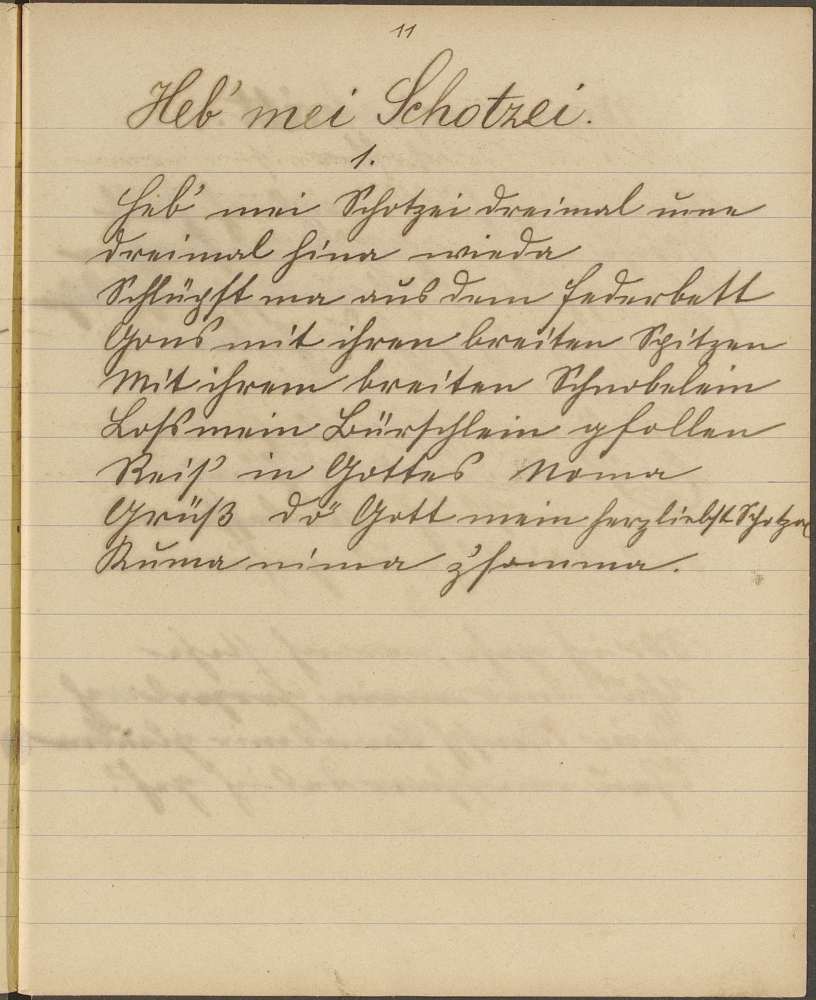 11
Heb' mei Schotzei.
1.
Heb' mei Schotzei dreimal ume
dreimal hina wieda
Schlüpft ma aus dem Federbett
Gons mit ihren breiten Spitzen
Mit ihrem breiten Schnobelein
Loss mein Bürschlein gfollen
Reis' in Gottes Noma
Grüß dö Gott mein herzliebst
Kuma nima z'somma.